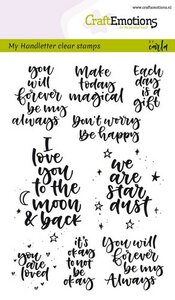 www.craftemotions.nl
CraftEmotions
My Handletter clear stamps
by
carla
you
will
forever
be my
always
Make
today
magical
Each
day
is a
gift
Don't worry
Be happy
I
love
you
to the
moon
& back
we
are
star
dust
you
are
loved
it's
okay
to not
be
okay
You will
forever
be my
Always